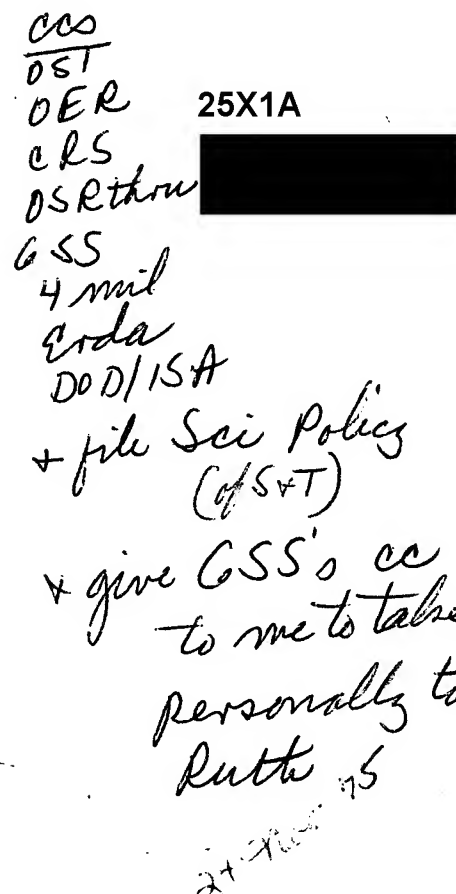 ccs
OST
OER
25X1A
CRS
OSR thru
GSS
4 mil
Erda
DOD/ISA
+ file Sci Policy
(of S+T)
+ give GSS's cc
to me to take
personally to
Ruth
75